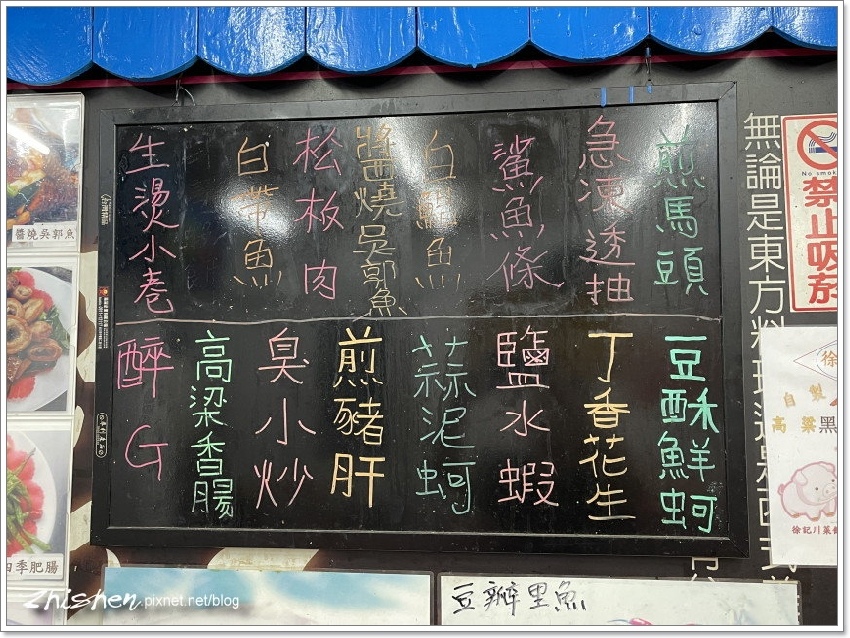 煎馬頭
急凍透抽
鯊魚條
白鯧魚
醬燒吳郭魚
松板肉
白帶魚
生燙小卷
豆酥鮮蚵
丁香花生
鹽水蝦
蒜泥蚵
煎豬肝
臭小炒
高梁香腸
醉G
無論是東方料
No smok
禁止吸菸
徐
自製
高粱黑
徐記川菜
醬燒吳郭魚
四季肥腸
豆瓣里魚
zhishen.pixnet.net/blog